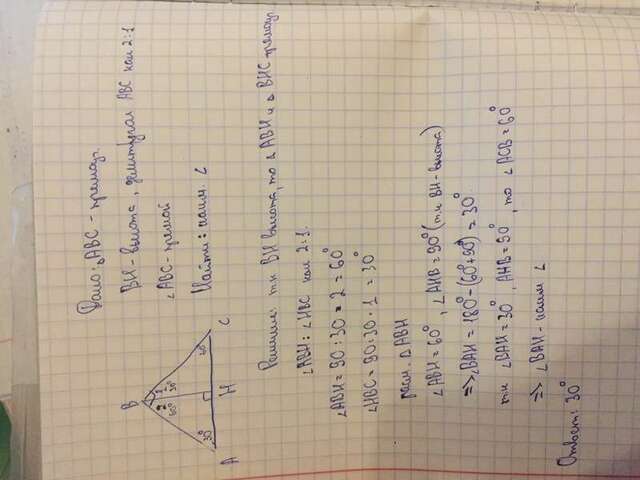 Дано: △ABC - прямоуг.
BH - высота, делит угол ABC как 2:1
∠ABC - прямой
Найти: наим. ∠
B
2 1
60° 30°
30° 60°
A H C
Решение: т.к BH высота, то △ABH и △BHC прямоуг.
∠ABH : ∠HBC как 2:1.
∠ABH = 90:30 · 2 = 60°
∠HBC = 90:30 · 1 = 30°
расм. △ABH
∠ABH = 60°, ∠AHB = 90° (т.к BH - высота)
=> ∠BAH = 180° - (60° + 90°) = 30°
т.к ∠BAH = 30°, AHB = 90°, то ∠ACB = 60°
=> ∠BAH - наим ∠
Ответ: 30°